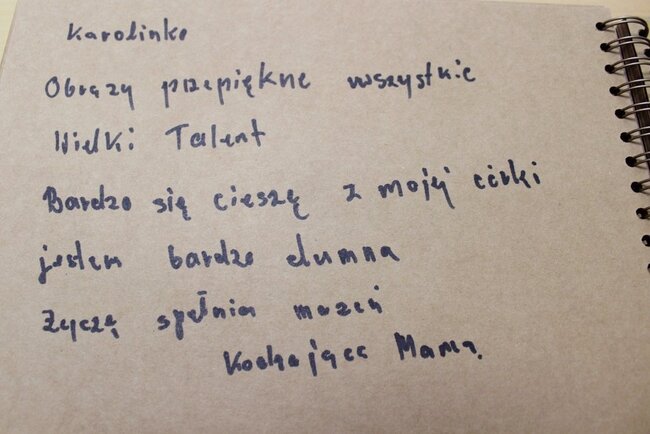 Karolinko
Obrazy przepiękne wszystkie
Wielki Talent
Bardzo się cieszę z mojej córki
jestem bardzo dumna
Życzę spełnia mazeń
Kochająca Mama.